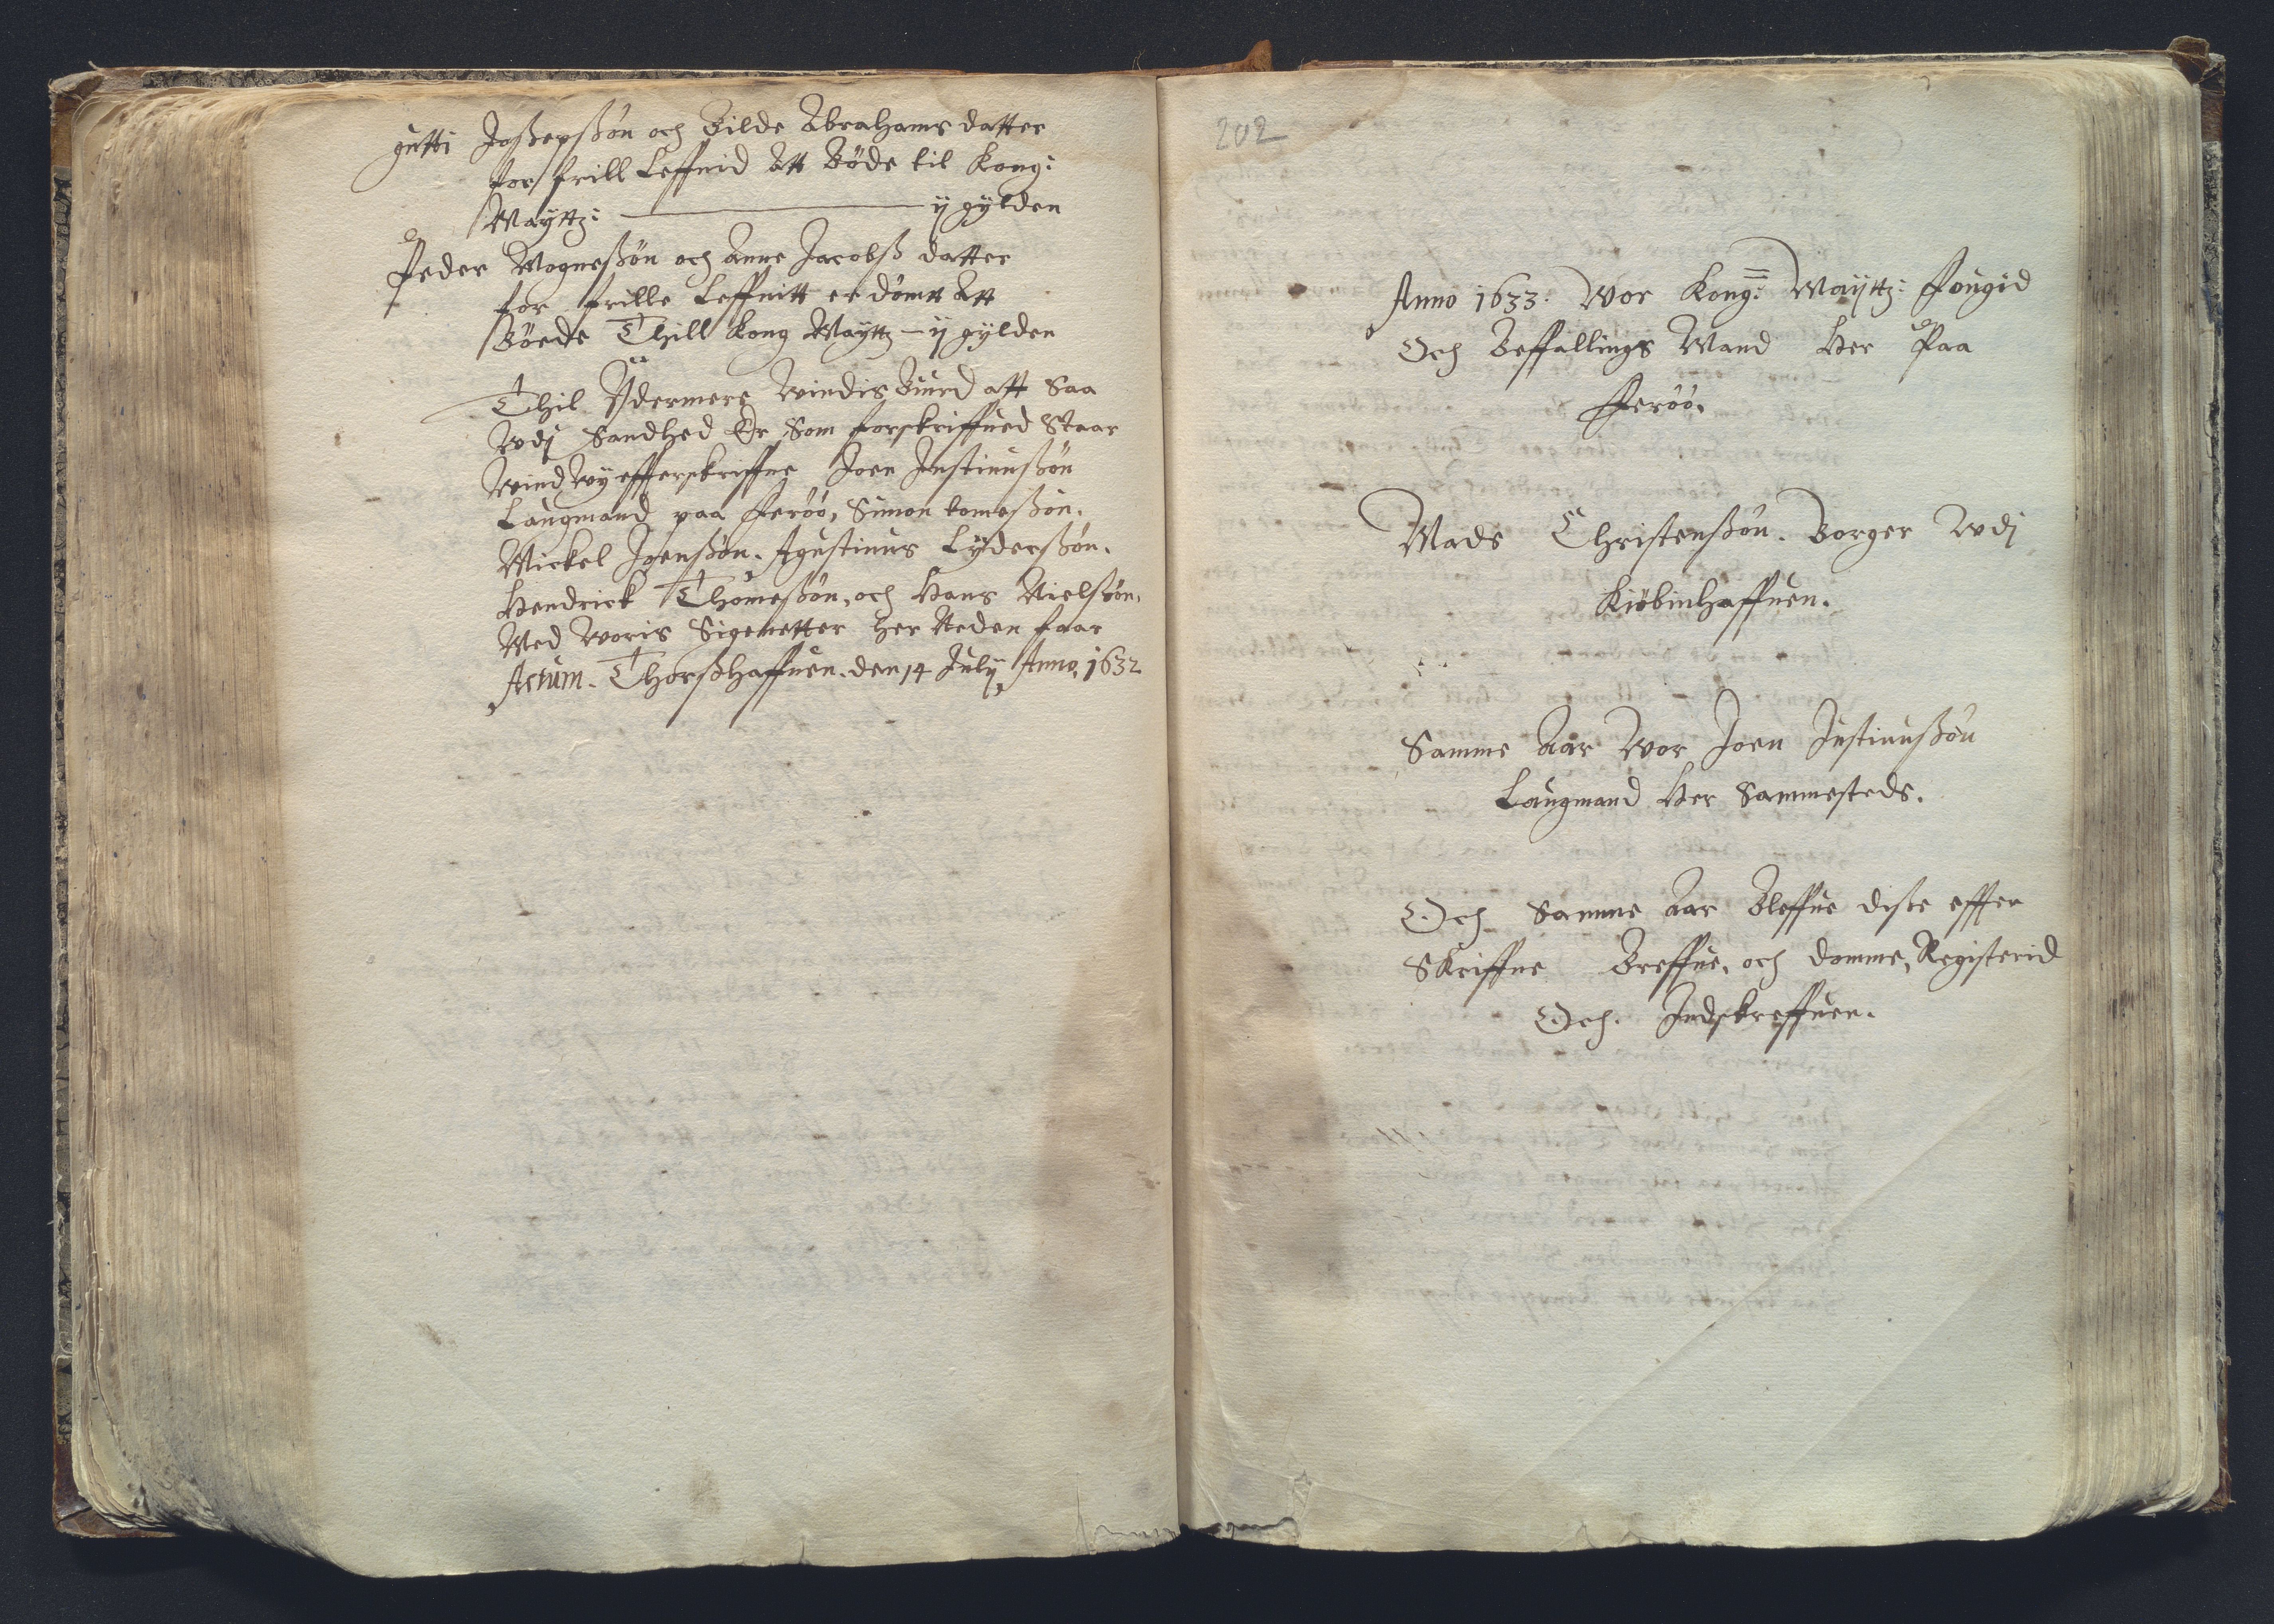 gutti Joßepßøn och Bilde Abrahams datter
for frill Leffnid Att Bøde til Kong:
Mayttz: ij gylden
Peder Mogneßøn och Anne Jacobß datter
for frille Leffnitt er dømtt Att
Bøedte Thill Kong Mayttz – ij gylden
Thil Ydermere Windis Buurd att Saa
Wdj Sandhed Er Som forskriffued Staar
Wind Wy effterskriffne Joen Justinußøn
Laugmand paa Ferøø, Simon tomeßøn.
Mickel Joenßøn. Agustinus Lyderßøn.
Hendrick Thomeßøn, och Hans Nielßøn,
Med Woris Signetter Her Neden faar
Actum. Thorßhaffuen. den 14 July Anno, 1632
202
Anno 1633. Wor Kong: Mayttz: Fougid
Och Beffallings Mand Her Paa
Ferøø.
Mads Christenßøn. Borger Wdj
Kiøbinhaffuen.
Samme Aar Wor Joen Justinußøn
Laugmand Her Sammesteds.
Och Samme Aar Bleffue diße effter
Skriffne Breffue, och Domme, Registerid
Och. Indskreffuen.